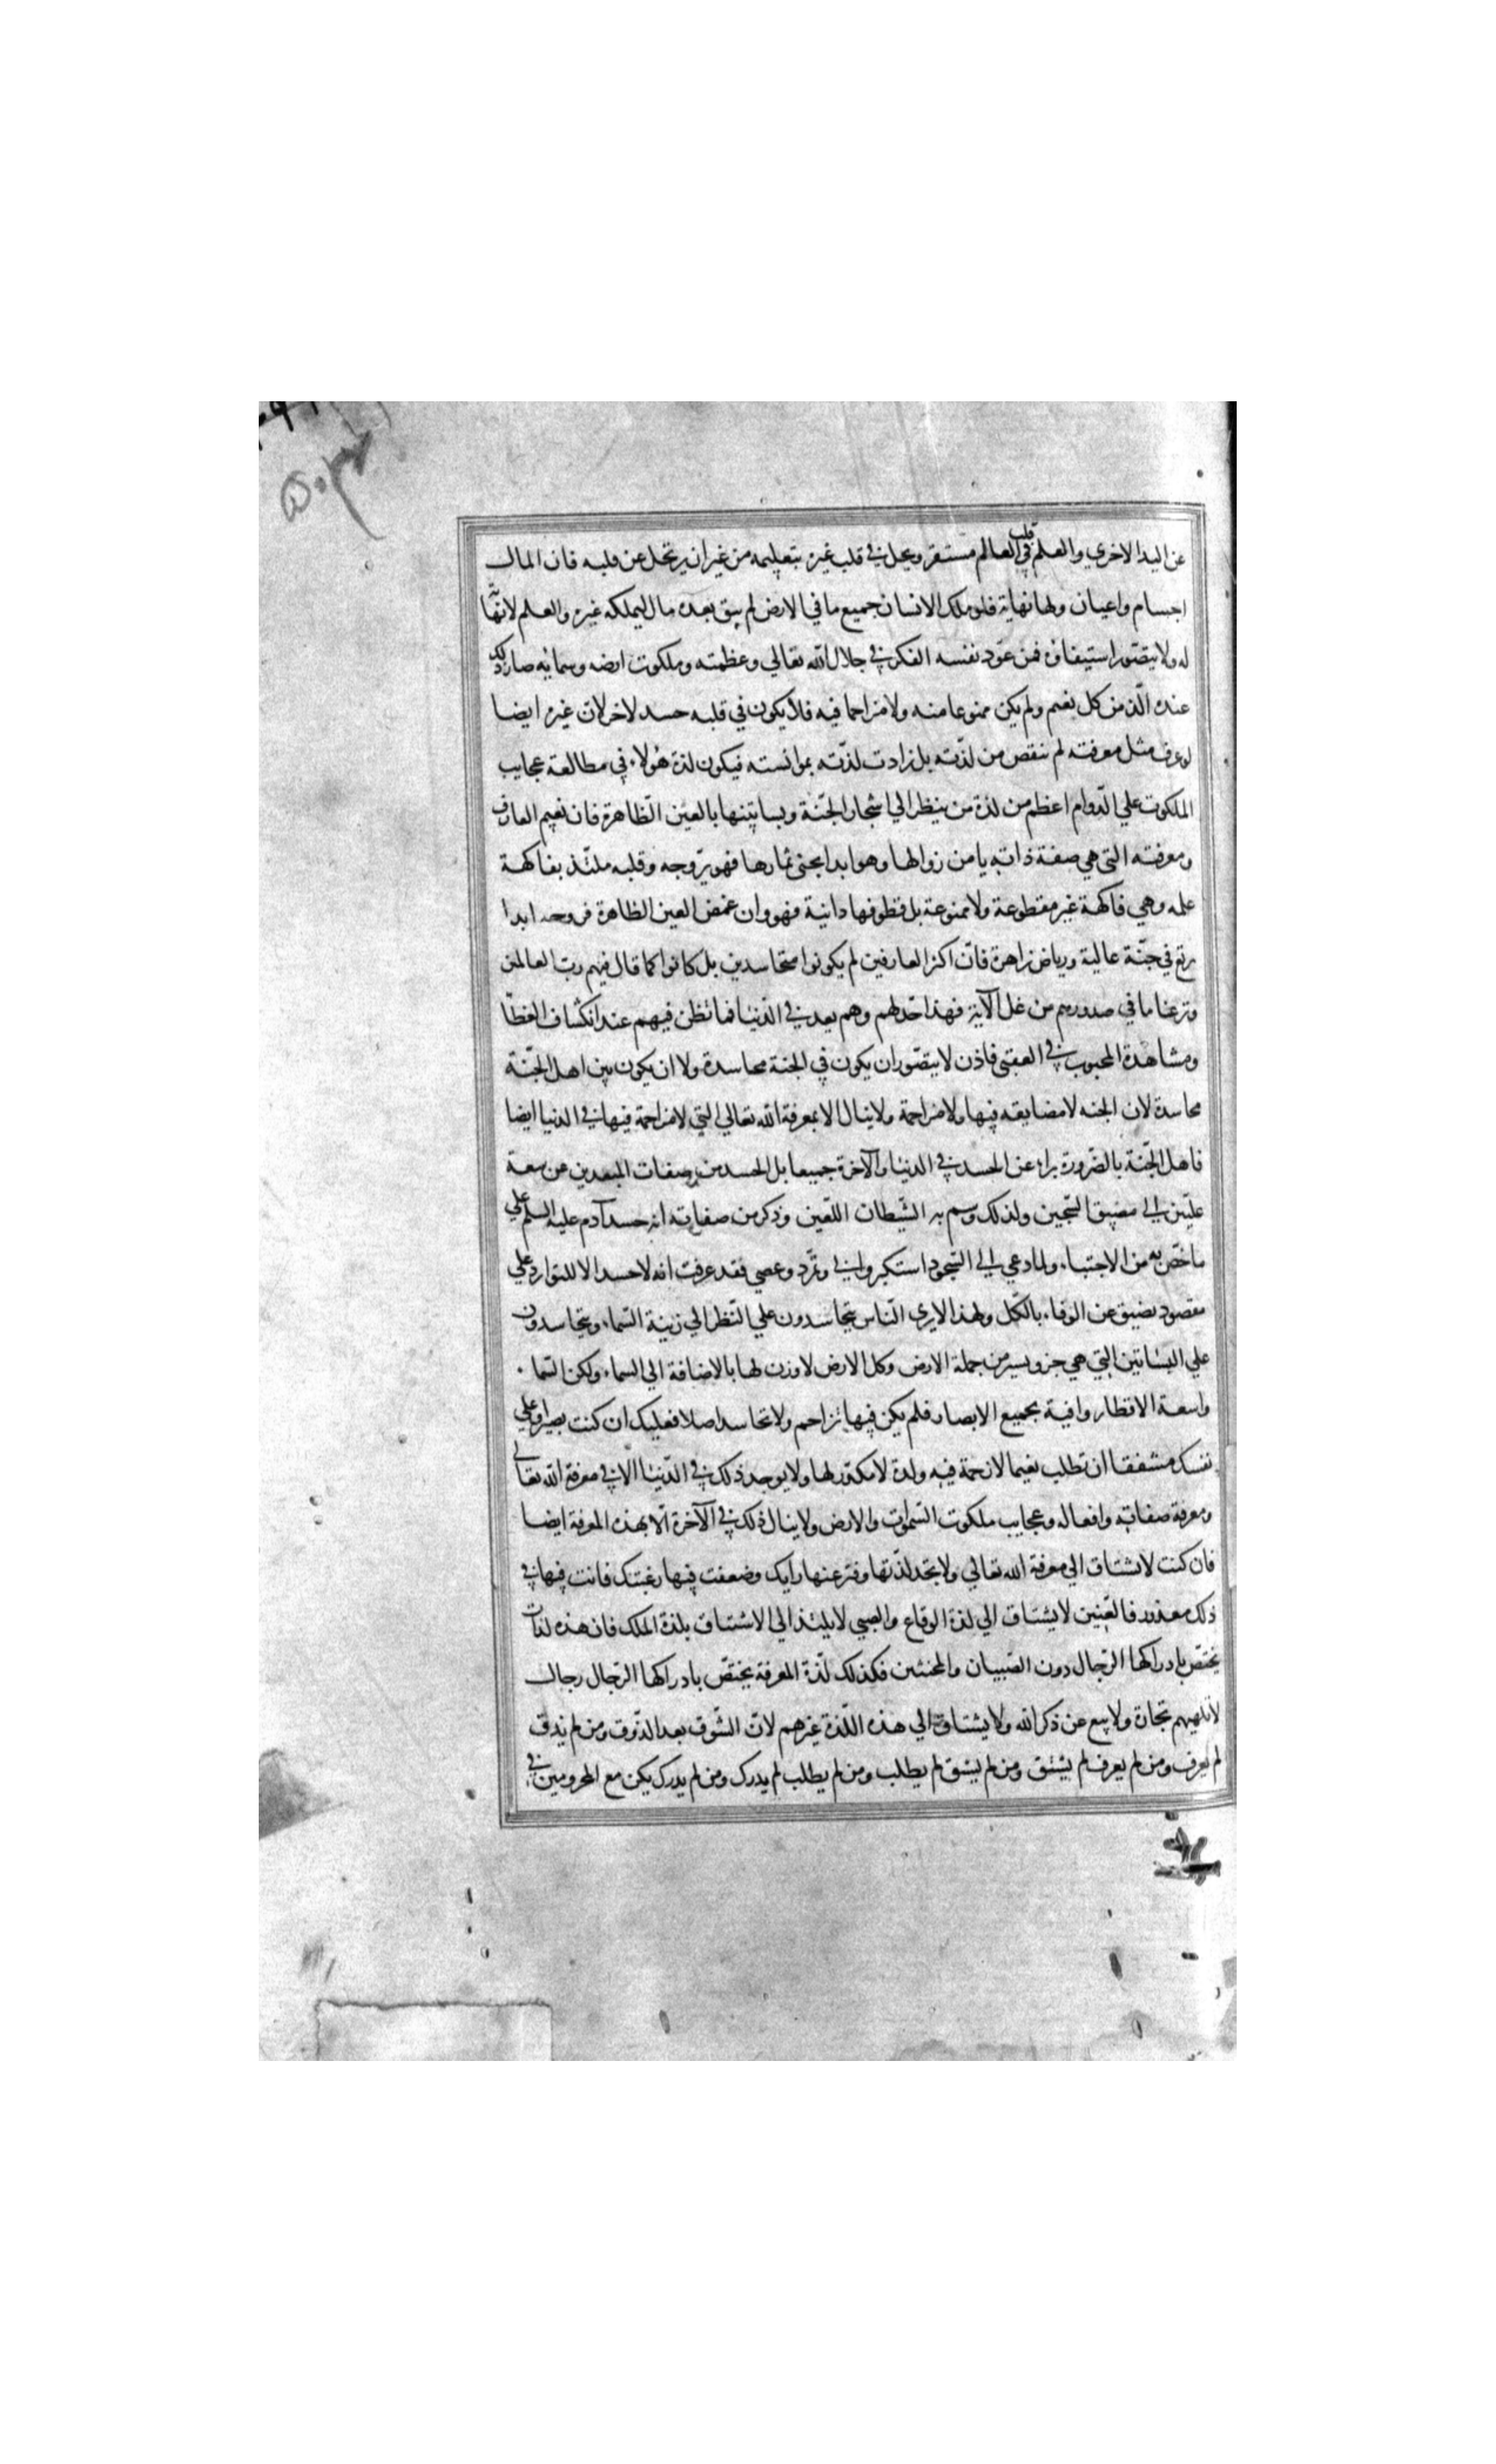 عن اليد الاخري والعلم في قلب العالم مستقر ويحل في قلب غيره بتعليمه من غير ان يرتحل عن قلبه فان المال
اجسام واعيان ولها نهاية فلو ملك الانسان جميع ما في الارض لم يبق بعده مال ليملكه غيره والعلم لا نهاية
له ولا يتصور استيفاؤه فمن عود نفسه الفكر في جلال الله تعالي وعظمته وملكوت ارضه وسمائه صار ذلك
عنده الذ من كل نعيم ولم يكن ممنوعا منه ولا مزاحما فيه فلا يكون في قلبه حسد لاخر لان غيره ايضا
لو عرف مثل معرفته لم ينقص من لذته بل زادت لذته بموانسته فيكون لذة هؤلاء في مطالعة عجايب
الملكوت علي الدوام اعظم من لذة من ينظر الي اشجار الجنة وبساتينها بالعين الظاهرة فان نعيم العارف
ومعرفته التي هي صفة ذاته يامن زوالها وهو ابدا يجني ثمارها فهو بروحه وقلبه ملتذ بفاكهة
علمه وهي فاكهة غير مقطوعة ولا ممنوعة بل قطوفها دانية فهو وان غمض العين الظاهرة فروحه ابدا
يرتع في جنة عالية ورياض زاهرة فان اكثر العارفين لم يكونوا متحاسدين بل كانوا كما قال فيهم رب العالمين
ونزعنا ما في صدورهم من غل الآية فهذا حد لهم وهم بعد في الدنيا فما تظن فيهم عند انكشاف الغطا
ومشاهدة المحبوب في العقبي فاذن لا يتصور ان يكون في الجنة محاسدة ولا ان يكون بين اهل الجنة
محاسدة لان الجنه لا مضايقه فيها ولا مزاحمة ولا ينال الا بمعرفة الله تعالي التي لا مزاحمة فيها في الدنيا ايضا
فاهل الجنة بالضرورة براء عن الحسد في الدنيا والآخرة جميعا بل الحسد من صفات المبعدين عن سعة
عليين الي مضيق السجين ولذلك وسم به الشيطان اللعين وذكر من صفاته انه حسد آدم عليه السلم علي
ما خص به من الاجتباء ولما دعي الي السجود استكبر وابي وتمرد وعصي فقد عرفت انه لا حسد الا للتوارد علي
مقصود يضيق عن الوفاء بالكل ولهذا لا يري الناس يتحاسدون علي النظر الي زينة السماء ويتحاسدون
علي البساتين التي هي جزو يسير من جملة الارض وكل الارض لا وزن لها بالاضافة الي السماء ولكن السماء
واسعة الاقطار وافية بجميع الابصار فلم يكن فيها تزاحم ولا تحاسد اصلا فعليك ان كنت بصيرا وعلي
نفسك مشفقا ان تطلب نعيما لا زحمة فيه ولذة لا مكدر لها ولا يوجد ذلك في الدنيا الا في معرفة الله تعالي
ومعرفة صفاته وافعاله وعجايب ملكوت السموات والارض ولا ينال ذلك في الآخرة الا بهذه المعرفة ايضا
فان كنت لا تشتاق الي معرفة الله تعالي ولا تجد لذتها وفتر عنها رايك وضعفت فيها رغبتك فانت فيها في
ذلك معذور فالعنين لا يشتاق الي لذة الوقاع والصبي لا يلتذ الي الاشتياق بلذة الملك فان هذه لذات
يختص بادراكها الرجال دون الصبيان والمخنثين فكذلك لذة المعرفة يختص بادراكها الرجال رجال
لا تلهيهم تجارة ولا بيع عن ذكر الله ولا يشتاق الي هذه اللذة غيرهم لان الشوق بعد الذوق ومن لم يذق
لم يعرف ومن لم يعرف لم يشتق ومن لم يشتق لم يطلب ومن لم يطلب لم يدرك ومن لم يدرك يكن مع المحرومين في